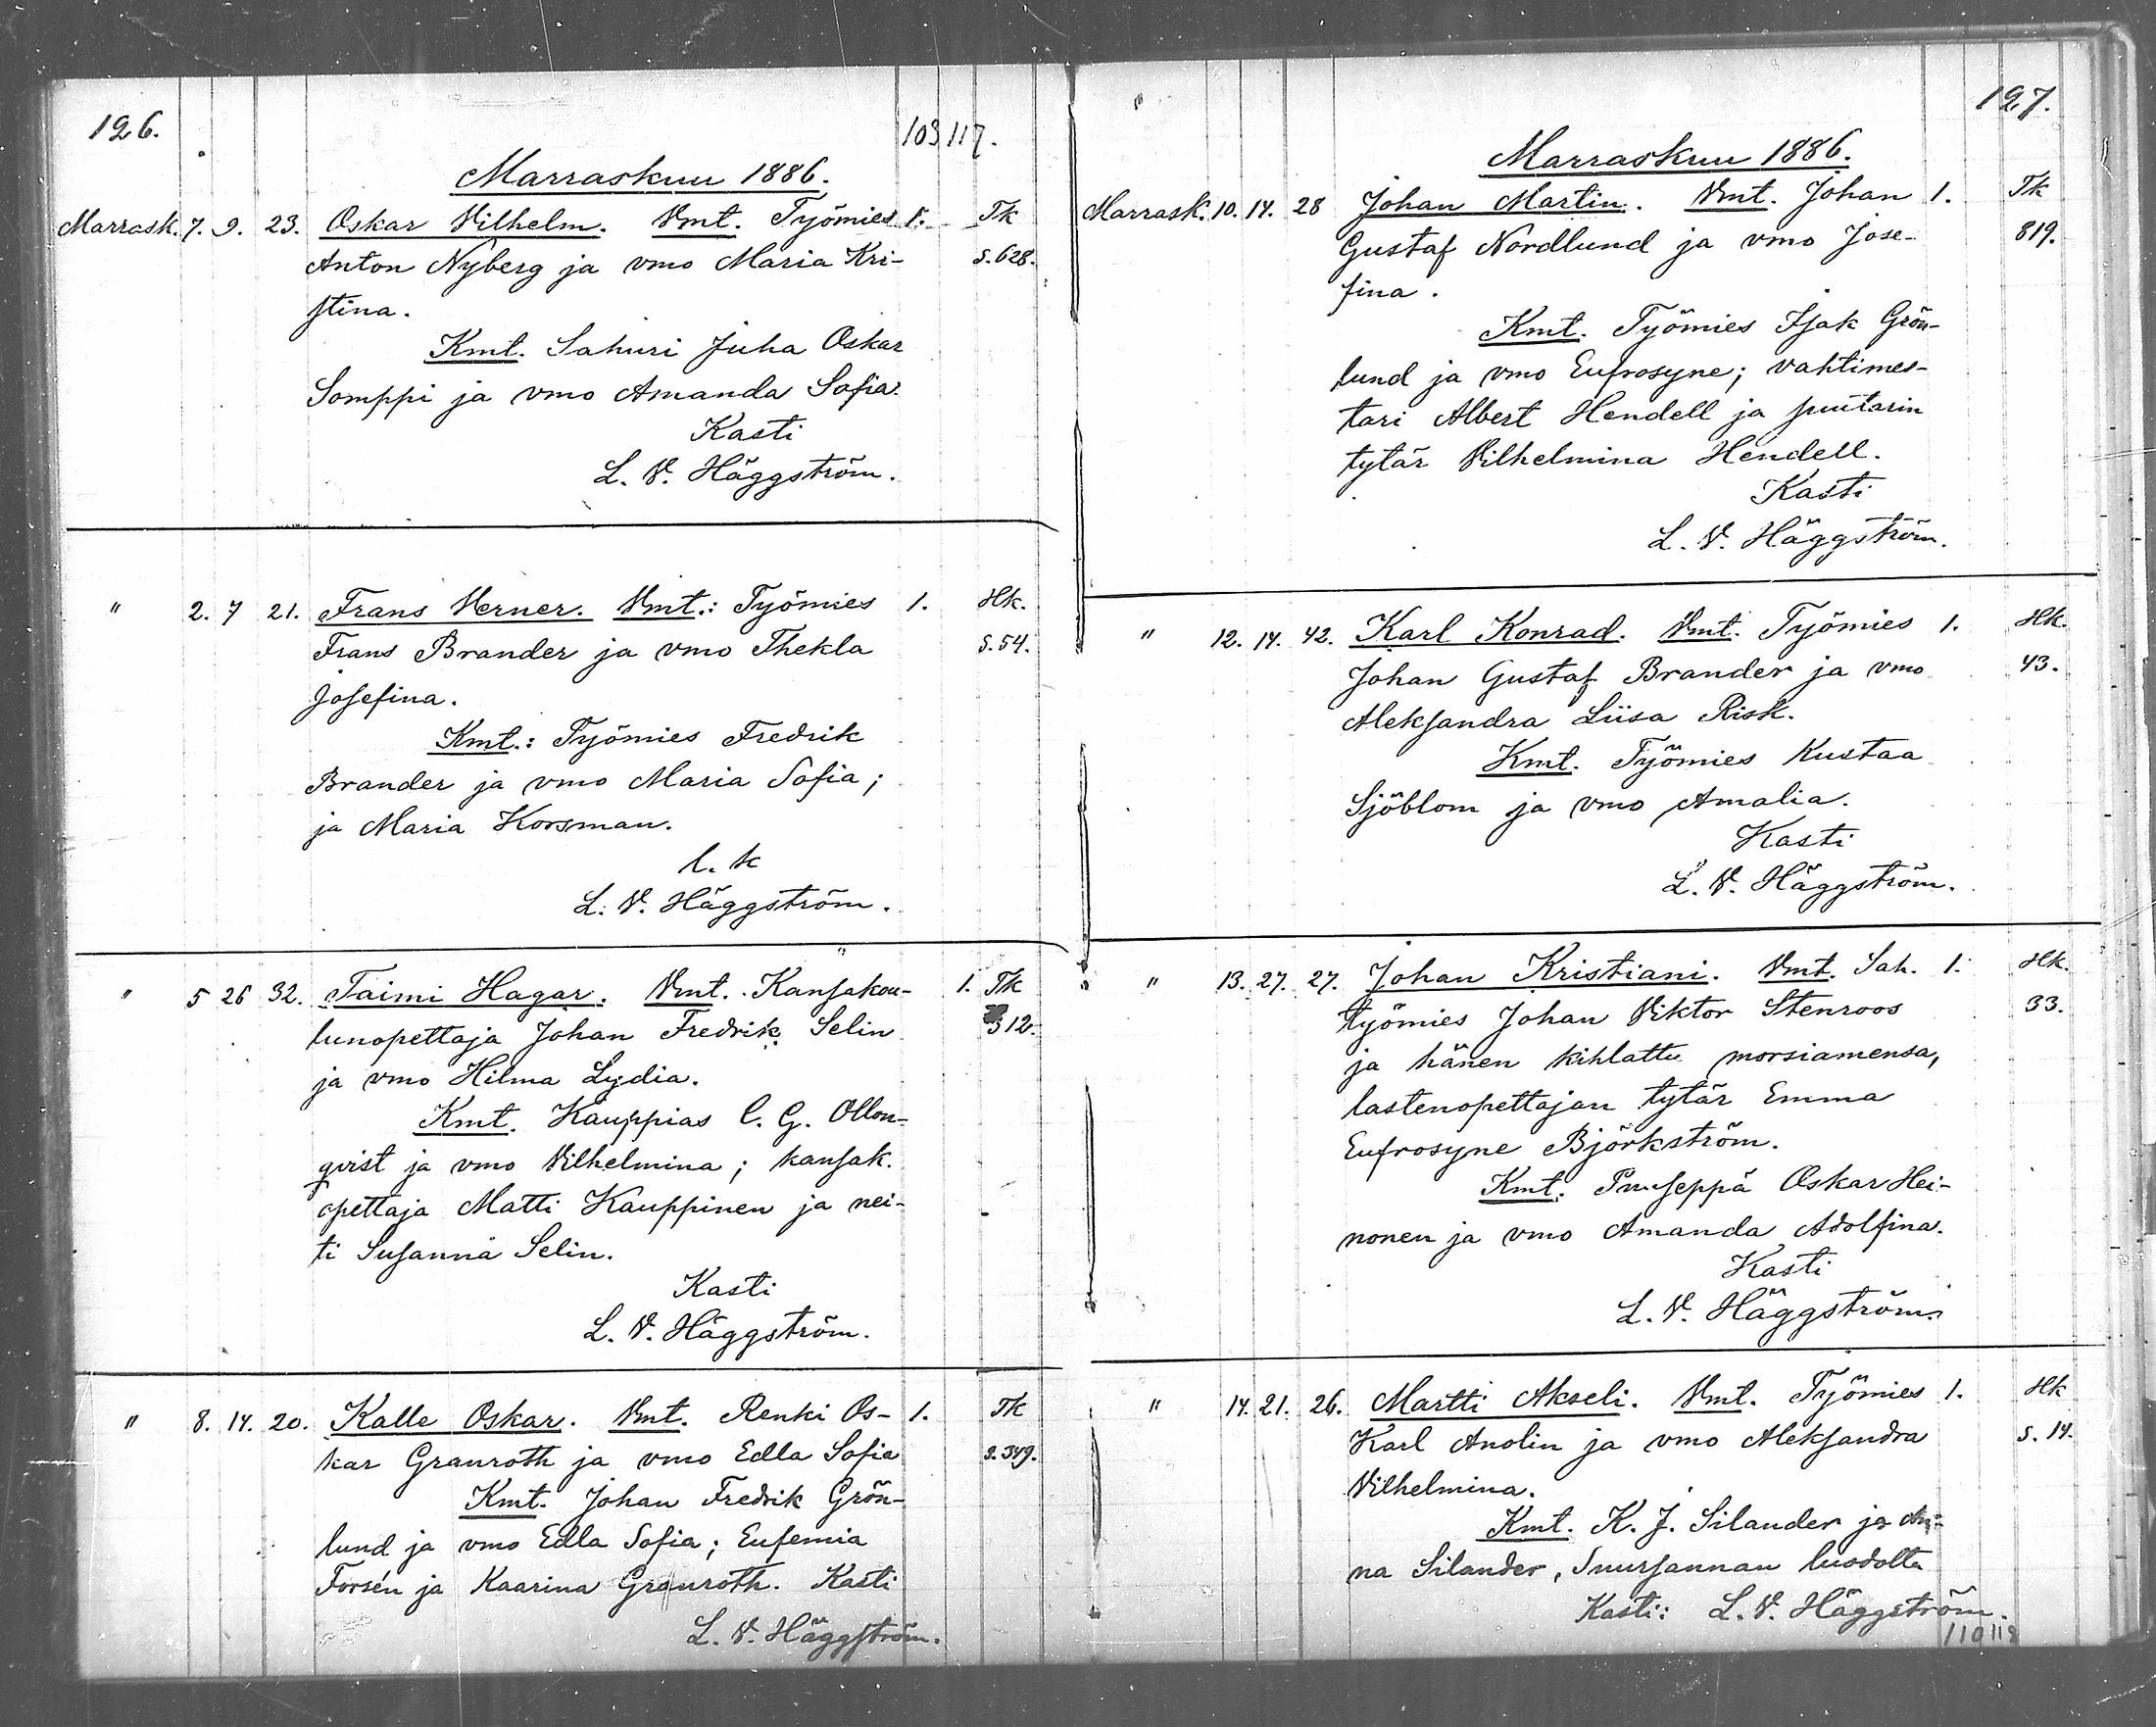 126.
103 117.
Marraskuu 1886.
Marrask. 7. 9. 23. Oskar Vilhelm. Vmt. Työmies 1. Tk
Anton Nyberg ja vmo Maria Kri- s. 628.
stina.
Kmt. Sahuri Juha Oskar
Somppi ja vmo Amanda Sofia.
Kasti
L. V. Häggström.
" 2. 7 21. Frans Verner. Vmt.: Työmies 1. Hk.
Frans Brander ja vmo Thekla s. 54.
Josefina.
Kmt.: Työmies Fredrik
Brander ja vmo Maria Sofia;
ja Maria Korsman.
l. k
L. V. Häggström.
" 5 26 32. Taimi Hagar. Vmt. Kansakou- 1. Tk
lunopettaja Johan Fredrik Selin 312.
ja vmo Hilma Lydia.
Kmt. Kauppias C. G. Ollon-
qvist ja vmo Vilhelmina; kansak.
opettaja Matti Kauppinen ja nei-
ti Susanna Selin.
Kasti
L. V. Häggström.
" 8. 14. 20. Kalle Oskar. Vmt. Renki Os- 1. Tk
kar Granroth ja vmo Edla Sofia s. 349.
Kmt. Johan Fredrik Grön-
lund ja vmo Edla Sofia; Eufemia
Forsén ja Kaarina Granroth. Kasti
L. V. Häggström.
"
127.
Marraskuu 1886.
Marrask. 10. 14. 28 Johan Martin. Vmt. Johan 1. Tk
Gustaf Nordlund ja vmo Jose- 819.
fina.
Kmt. Työmies Isak Grön-
lund ja vmo Eufrosyne; vahtimes-
tari Albert Hendell ja puutarin
tytär Vilhelmina Hendell.
Kasti
L. V. Häggström.
" 12. 14. 42. Karl Konrad. Vmt. Työmies 1. Hk.
Johan Gustaf Brander ja vmo 43.
Aleksandra Liisa Risk.
Kmt. Työmies Kustaa
Sjöblom ja vmo Amalia.
Kasti
L. V. Häggström.
" 13. 27. 27. Johan Kristiani. Vmt. Sah. 1. Hk.
työmies Johan Viktor Stenroos 33.
ja hänen kihlattu morsiamensa,
lastenopettajan tytär Emma
Eufrosyne Björkström.
Kmt. Puuseppä Oskar Hei-
nonen ja vmo Amanda Adolfina.
Kasti
L. V. Häggström.
" 14. 21. 26. Martti Akseli. Vmt. Työmies 1. Hk
Karl Anolin ja vmo Aleksandra s. 14.
Vilhelmina.
Kmt. K. J. Silander ja An-
na Silander, Suursannan luodolta
Kasti: L. V. Häggström.
110 118